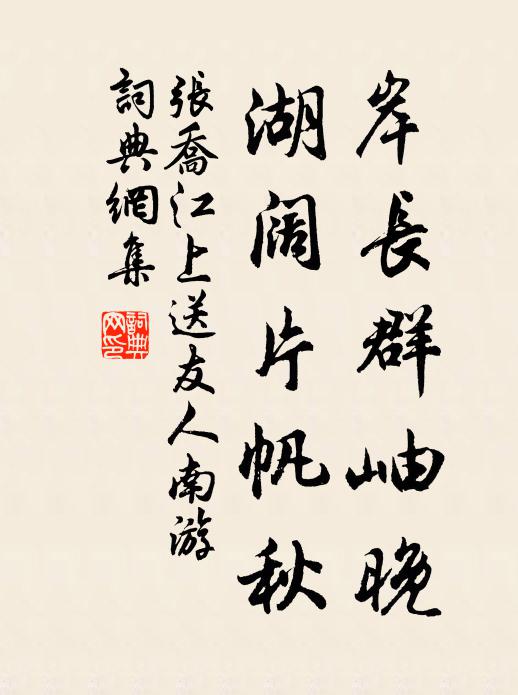 岸長群岫晚
湖阔片帆秋
張喬江上送友人南游
詞典網集
詞典网印